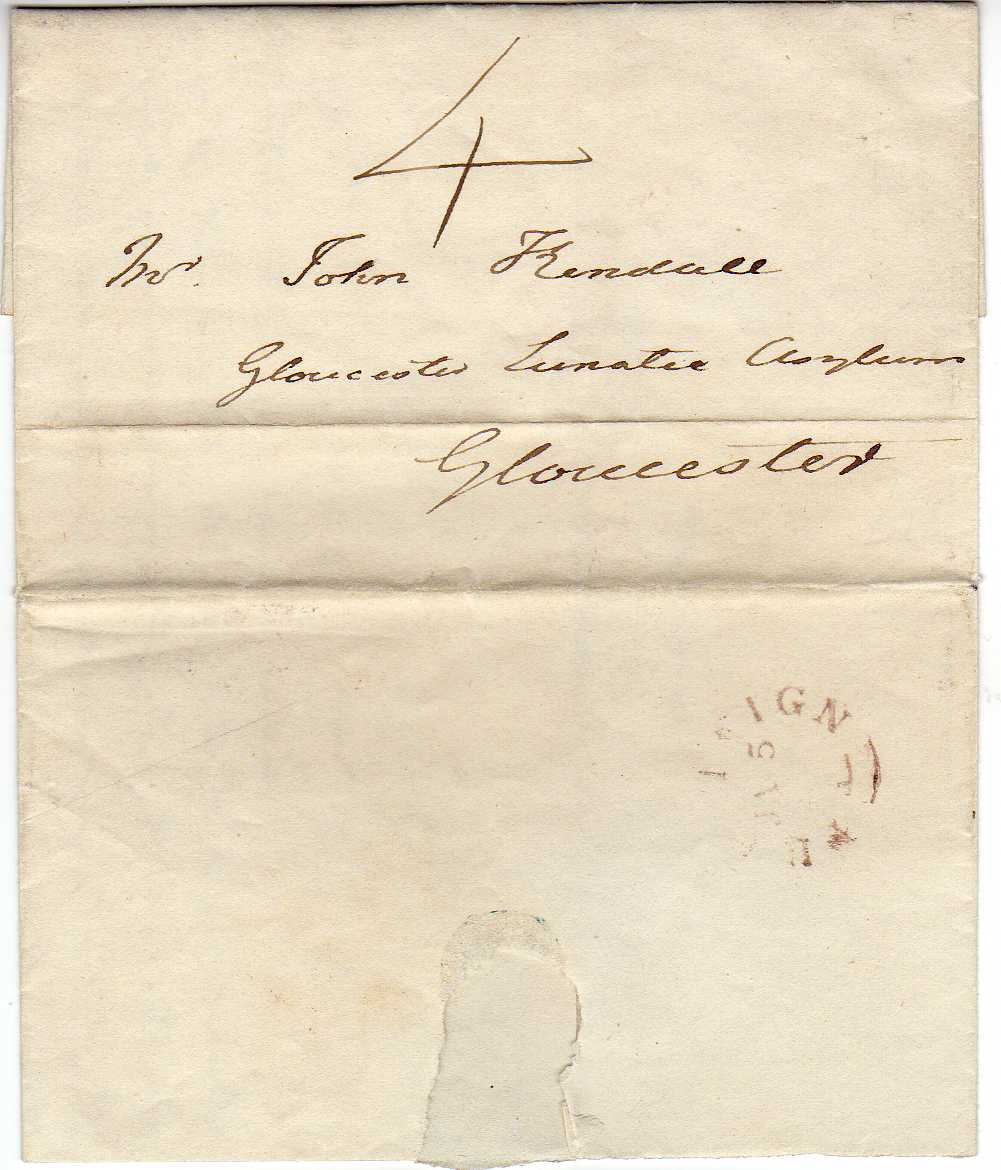 4
Mr. John Kendall
Gloucester Lunatic Asylum
Gloucester
IGN
5